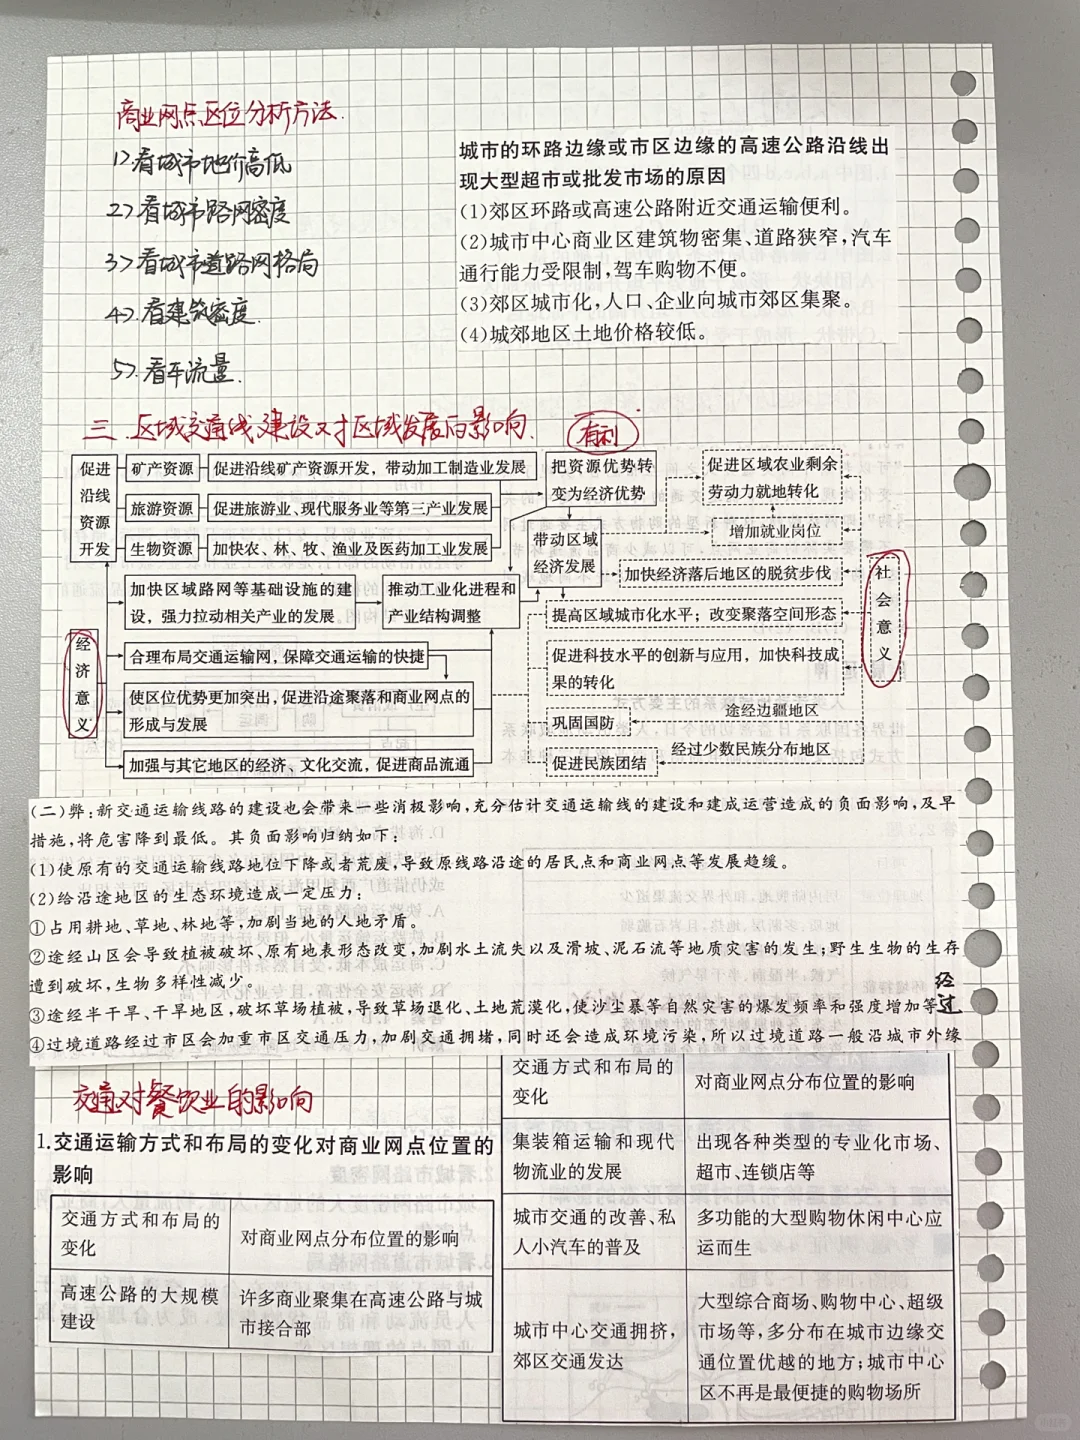 商业网点区位分析方法.
1>.看城市地价高低
2>.看城市路网密度
3>看城市道路网格局
4>.看建筑密度.
5>.看车流量.
城市的环路边缘或市区边缘的高速公路沿线出
现大型超市或批发市场的原因
(1)郊区环路或高速公路附近交通运输便利。
(2)城市中心商业区建筑物密集、道路狭窄,汽车
通行能力受限制,驾车购物不便。
(3)郊区城市化,人口、企业向城市郊区集聚。
(4)城郊地区土地价格较低。
三.区域交通线建设对区域发展的影响.
有利
促进
沿线
资源
开发
矿产资源
促进沿线矿产资源开发,带动加工制造业发展
旅游资源
促进旅游业、现代服务业等第三产业发展
生物资源
加快农、林、牧、渔业及医药加工业发展
把资源优势转
变为经济优势
带动区域
经济发展
促进区域农业剩余
劳动力就地转化
增加就业岗位
加快经济落后地区的脱贫步伐
加快区域路网等基础设施的建
设,强力拉动相关产业的发展
推动工业化进程和
产业结构调整
提高区域城市化水平;改变聚落空间形态
社
会
意
义
经
济
意
义
合理布局交通运输网,保障交通运输的快捷
促进科技水平的创新与应用,加快科技成
果的转化
使区位优势更加突出,促进沿途聚落和商业网点的
形成与发展
巩固国防
途经边疆地区
加强与其它地区的经济、文化交流,促进商品流通
促进民族团结
经过少数民族分布地区
(二)弊:新交通运输线路的建设也会带来一些消极影响,充分估计交通运输线的建设和建成运营造成的负面影响,及早
措施,将危害降到最低。其负面影响归纳如下:
(1)使原有的交通运输线路地位下降或者荒废,导致原线路沿途的居民点和商业网点等发展趋缓。
(2)给沿途地区的生态环境造成一定压力:
①占用耕地、草地、林地等,加剧当地的人地矛盾。
②途经山区会导致植被破坏、原有地表形态改变,加剧水土流失以及滑坡、泥石流等地质灾害的发生;野生生物的生存
遭到破坏,生物多样性减少。
③途经半干旱、干旱地区,破坏草场植被,导致草场退化、土地荒漠化,使沙尘暴等自然灾害的爆发频率和强度增加等
④过境道路经过市区会加重市区交通压力,加剧交通拥堵,同时还会造成环境污染,所以过境道路一般沿城市外缘
经过
交通对餐饮业的影响
1.交通运输方式和布局的变化对商业网点位置的
影响
交通方式和布局的
变化
对商业网点分布位置的影响
高速公路的大规模
建设
许多商业聚集在高速公路与城
市接合部
交通方式和布局的
变化
对商业网点分布位置的影响
集装箱运输和现代
物流业的发展
出现各种类型的专业化市场、
超市、连锁店等
城市交通的改善、私
人小汽车的普及
多功能的大型购物休闲中心应
运而生
城市中心交通拥挤,
郊区交通发达
大型综合商场、购物中心、超级
市场等,多分布在城市边缘交
通位置优越的地方;城市中心
区不再是最便捷的购物场所